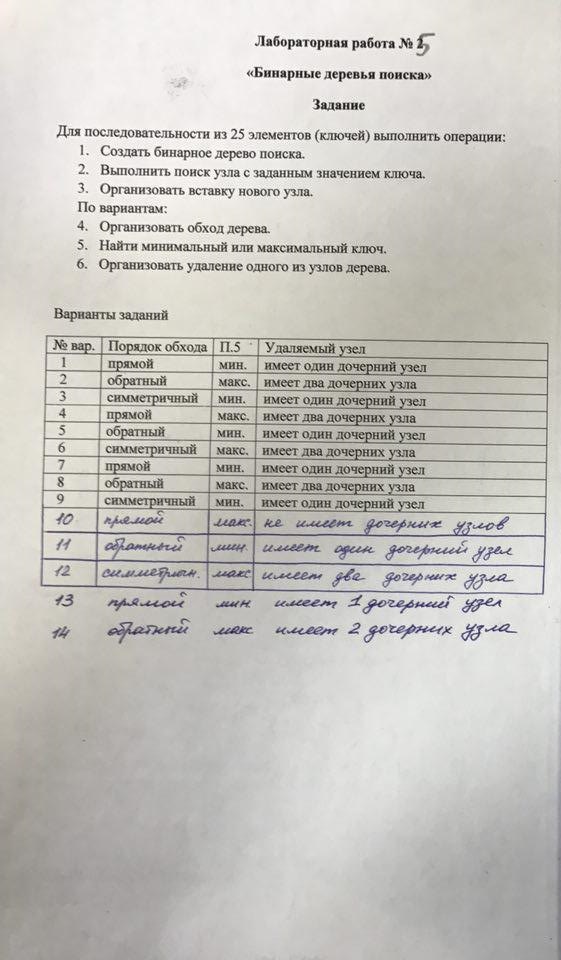 Лабораторная работа № 5
«Бинарные деревья поиска»
Задание
Для последовательности из 25 элементов (ключей) выполнить операции:
1. Создать бинарное дерево поиска.
2. Выполнить поиск узла с заданным значением ключа.
3. Организовать вставку нового узла.
По вариантам:
4. Организовать обход дерева.
5. Найти минимальный или максимальный ключ.
6. Организовать удаление одного из узлов дерева.
Варианты заданий
№ вар. Порядок обхода П.5 Удаляемый узел
1 прямой мин. имеет один дочерний узел
2 обратный макс. имеет два дочерних узла
3 симметричный мин. имеет один дочерний узел
4 прямой макс. имеет два дочерних узла
5 обратный мин. имеет один дочерний узел
6 симметричный макс. имеет два дочерних узла
7 прямой мин. имеет один дочерний узел
8 обратный макс. имеет два дочерних узла
9 симметричный мин. имеет один дочерний узел
10 прямой макс. не имеет дочерних узлов
11 обратный мин. имеет один дочерний узел
12 симметричн. макс имеет два дочерних узла
13 прямой мин имеет 1 дочерний узел
14 обратный макс имеет 2 дочерних узла